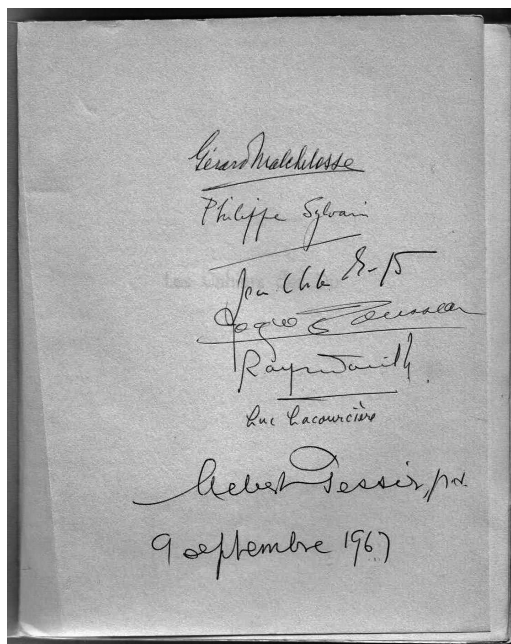 Gérard Malchelosse
Philippe Sylvain
Jean
Jacques Rousseau
Raymond Douville
Luc Lacourcière
Albert Tessier, ptr.
9 septembre 1967